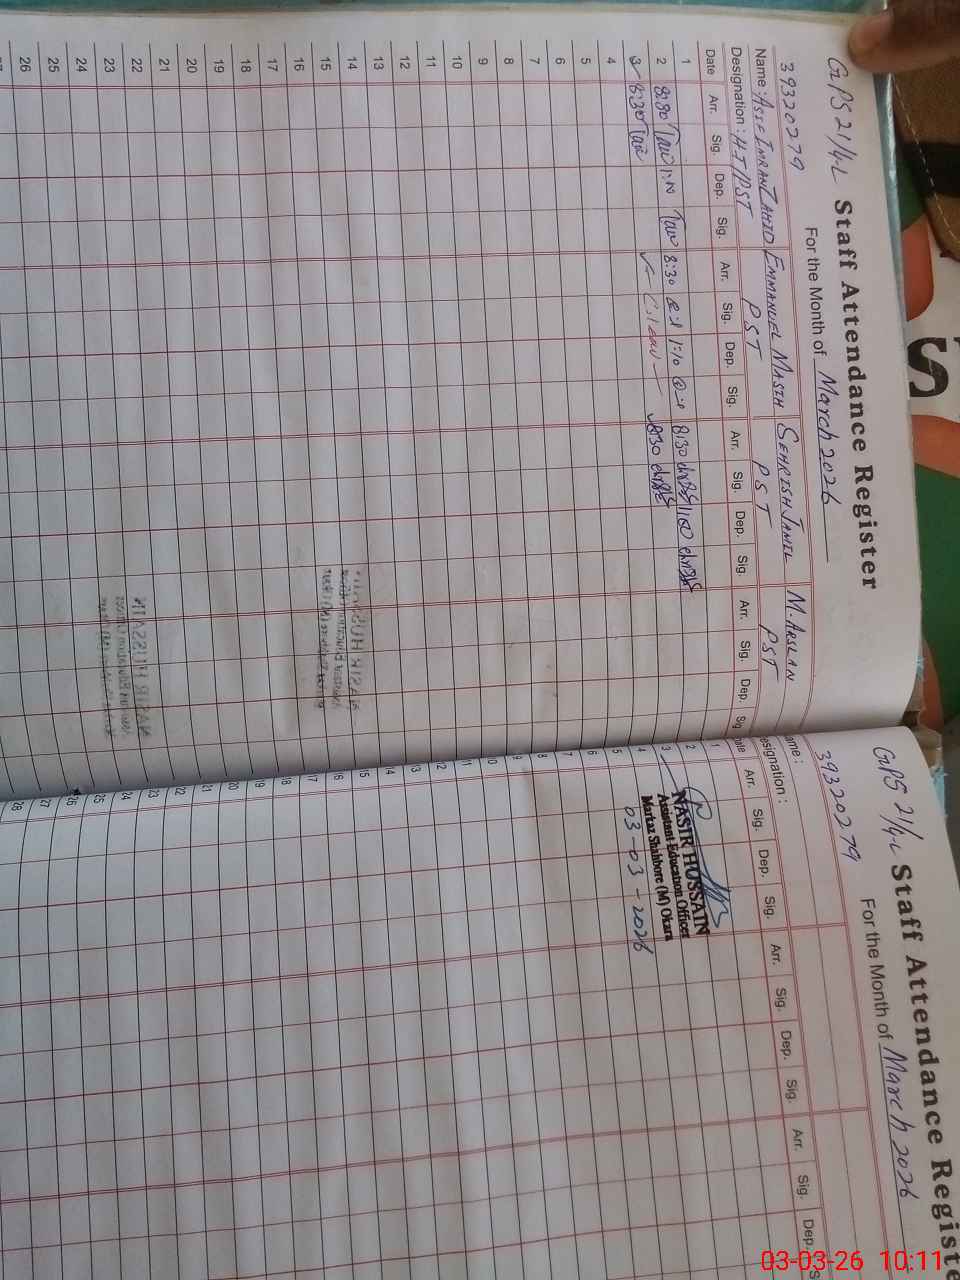 GPS 21/4-L Staff Attendance Register
For the Month of March 2026
39320279
Name: ASIF IMRAN ZAHID EMMANUEL MASIH SEHRISH JAMIL M. ARSLAN
Designation: HT/PST PST PST PST
Date Arr. Sig. Dep. Sig. Arr. Sig. Dep. Sig. Arr. Sig. Dep. Sig. Arr. Sig. Dep. Sig
1
2 8:30 8:30 1:10 8:30
3 8:30 8:30
4
5
6
7
8
9
10
11
12
13
14
15
16
17
18
19
20
21
22
23
24
25
26
GPS 21/4-L Staff Attendance Registe
For the Month of March 2026
39320279
ame:
esignation:
ate Arr. Sig. Dep. Sig. Arr. Sig. Dep. Sig. Arr. Sig. Dep. S
1
2
3
4
5
6
7
8
9
10
11
12
13
14
15
16
17
18
19
20
21
22
23
24
25
26
27
28
NASIR HUSSAIN
Assistant Education Officer
Markaz Shahbore (M) Okara
03-03-2026
03-03-26 10:11